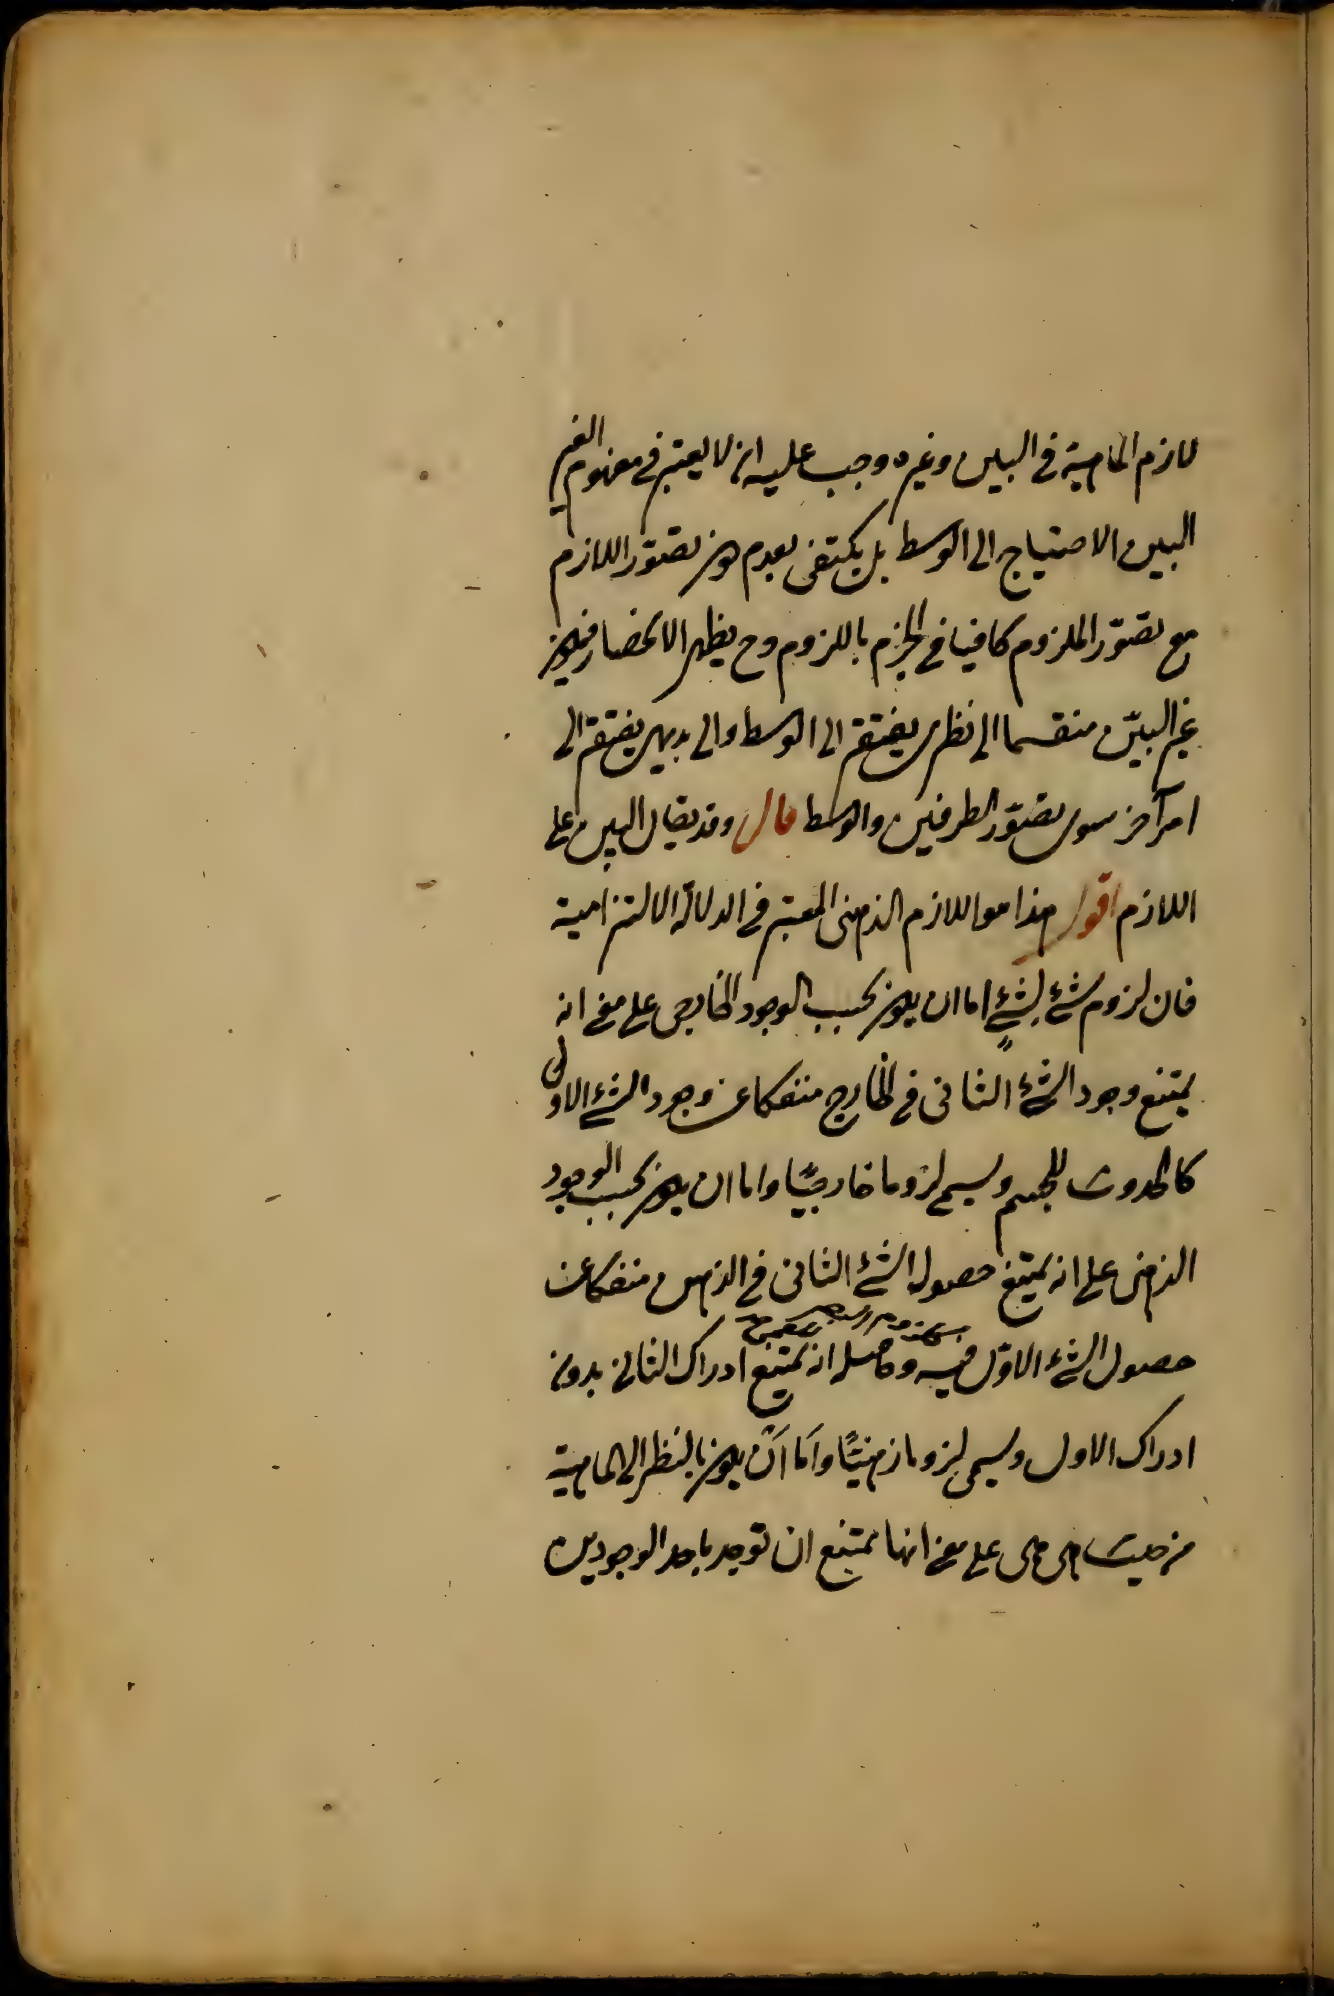 لازم الماهية فى البين وغيره وجب عليه ان لا يعتبر فى مفهوم الغير
البين الاحتياج الى الوسط بل يكتفى بعدم كون تصوّر اللازم
مع تصوّر الملزوم كافيا فى الجزم باللزوم وح يظهر الانحصار فيكون
غير البيّن منقسما الى نظرى يفتقر الى الوسط والى بديهى يفتقر الى
امر آخر سوى تصوّر الطرفين والوسط قال وقد يقال البين على
اللازم اقول هذا هو اللازم الذهنى المعتبر فى الدلالة الالتزامية
فان لزوم شئ لشئٍ اما ان يكون بحسب الوجود الخارجى على معنى انه
يمتنع وجود الشئ الثانى فى الخارج منفكا عن وجود الشئ الاول
كالحدوث للجسم ويسمى لزوما خارجيًا واما ان يكون بحسب الوجود
الذهنى على انه يمتنع حصول الشئ الثانى فى الذهن منفكا عن
حصول الشئ الاوّل فيه وحاصله انه يمتنع ادراك الثانى بدون
ادراك الاول ويسمى لزوما ذهنيًّا وامّا ان يكون بالنظر الى الماهية
من حيث هى هى على معنى انها يمتنع ان توجد باحد الوجودين